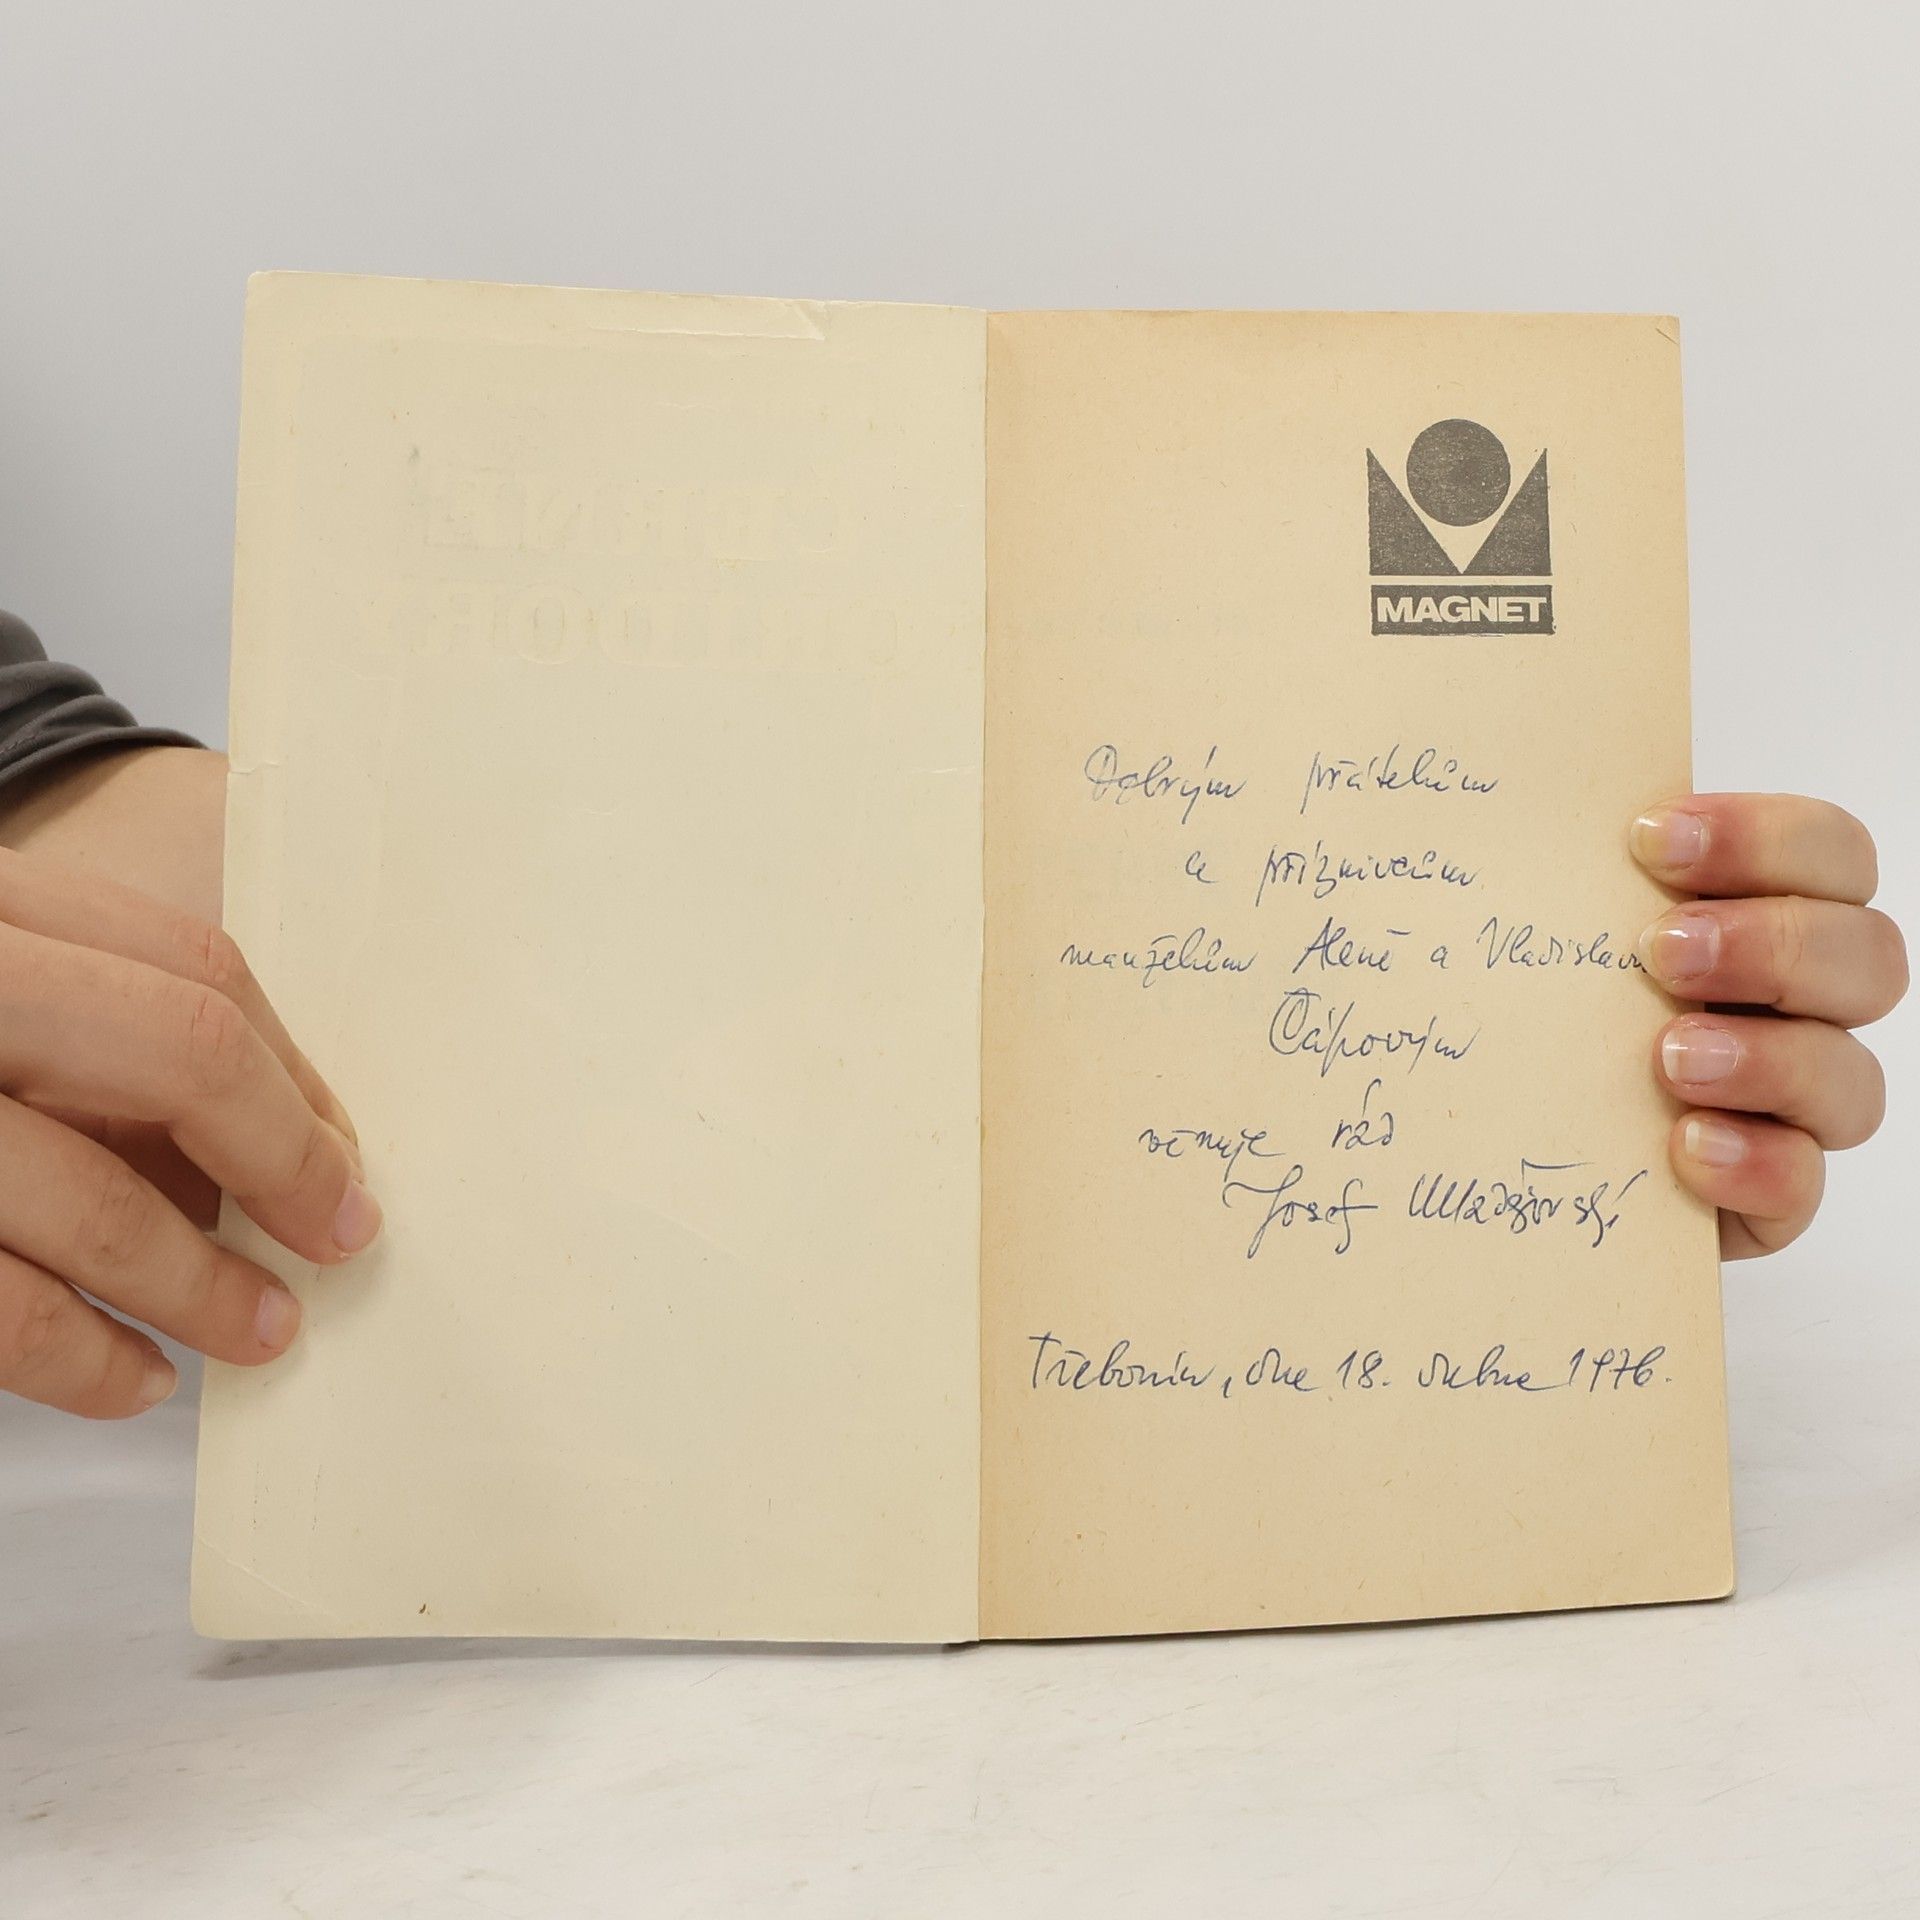 MAGNET
Dobrým přátelům
a příznivcům
manželům Aleně a Vladislavu
Čápovým
věnuje rád
Josef
Třebonín, dne 18. dubna 1976.